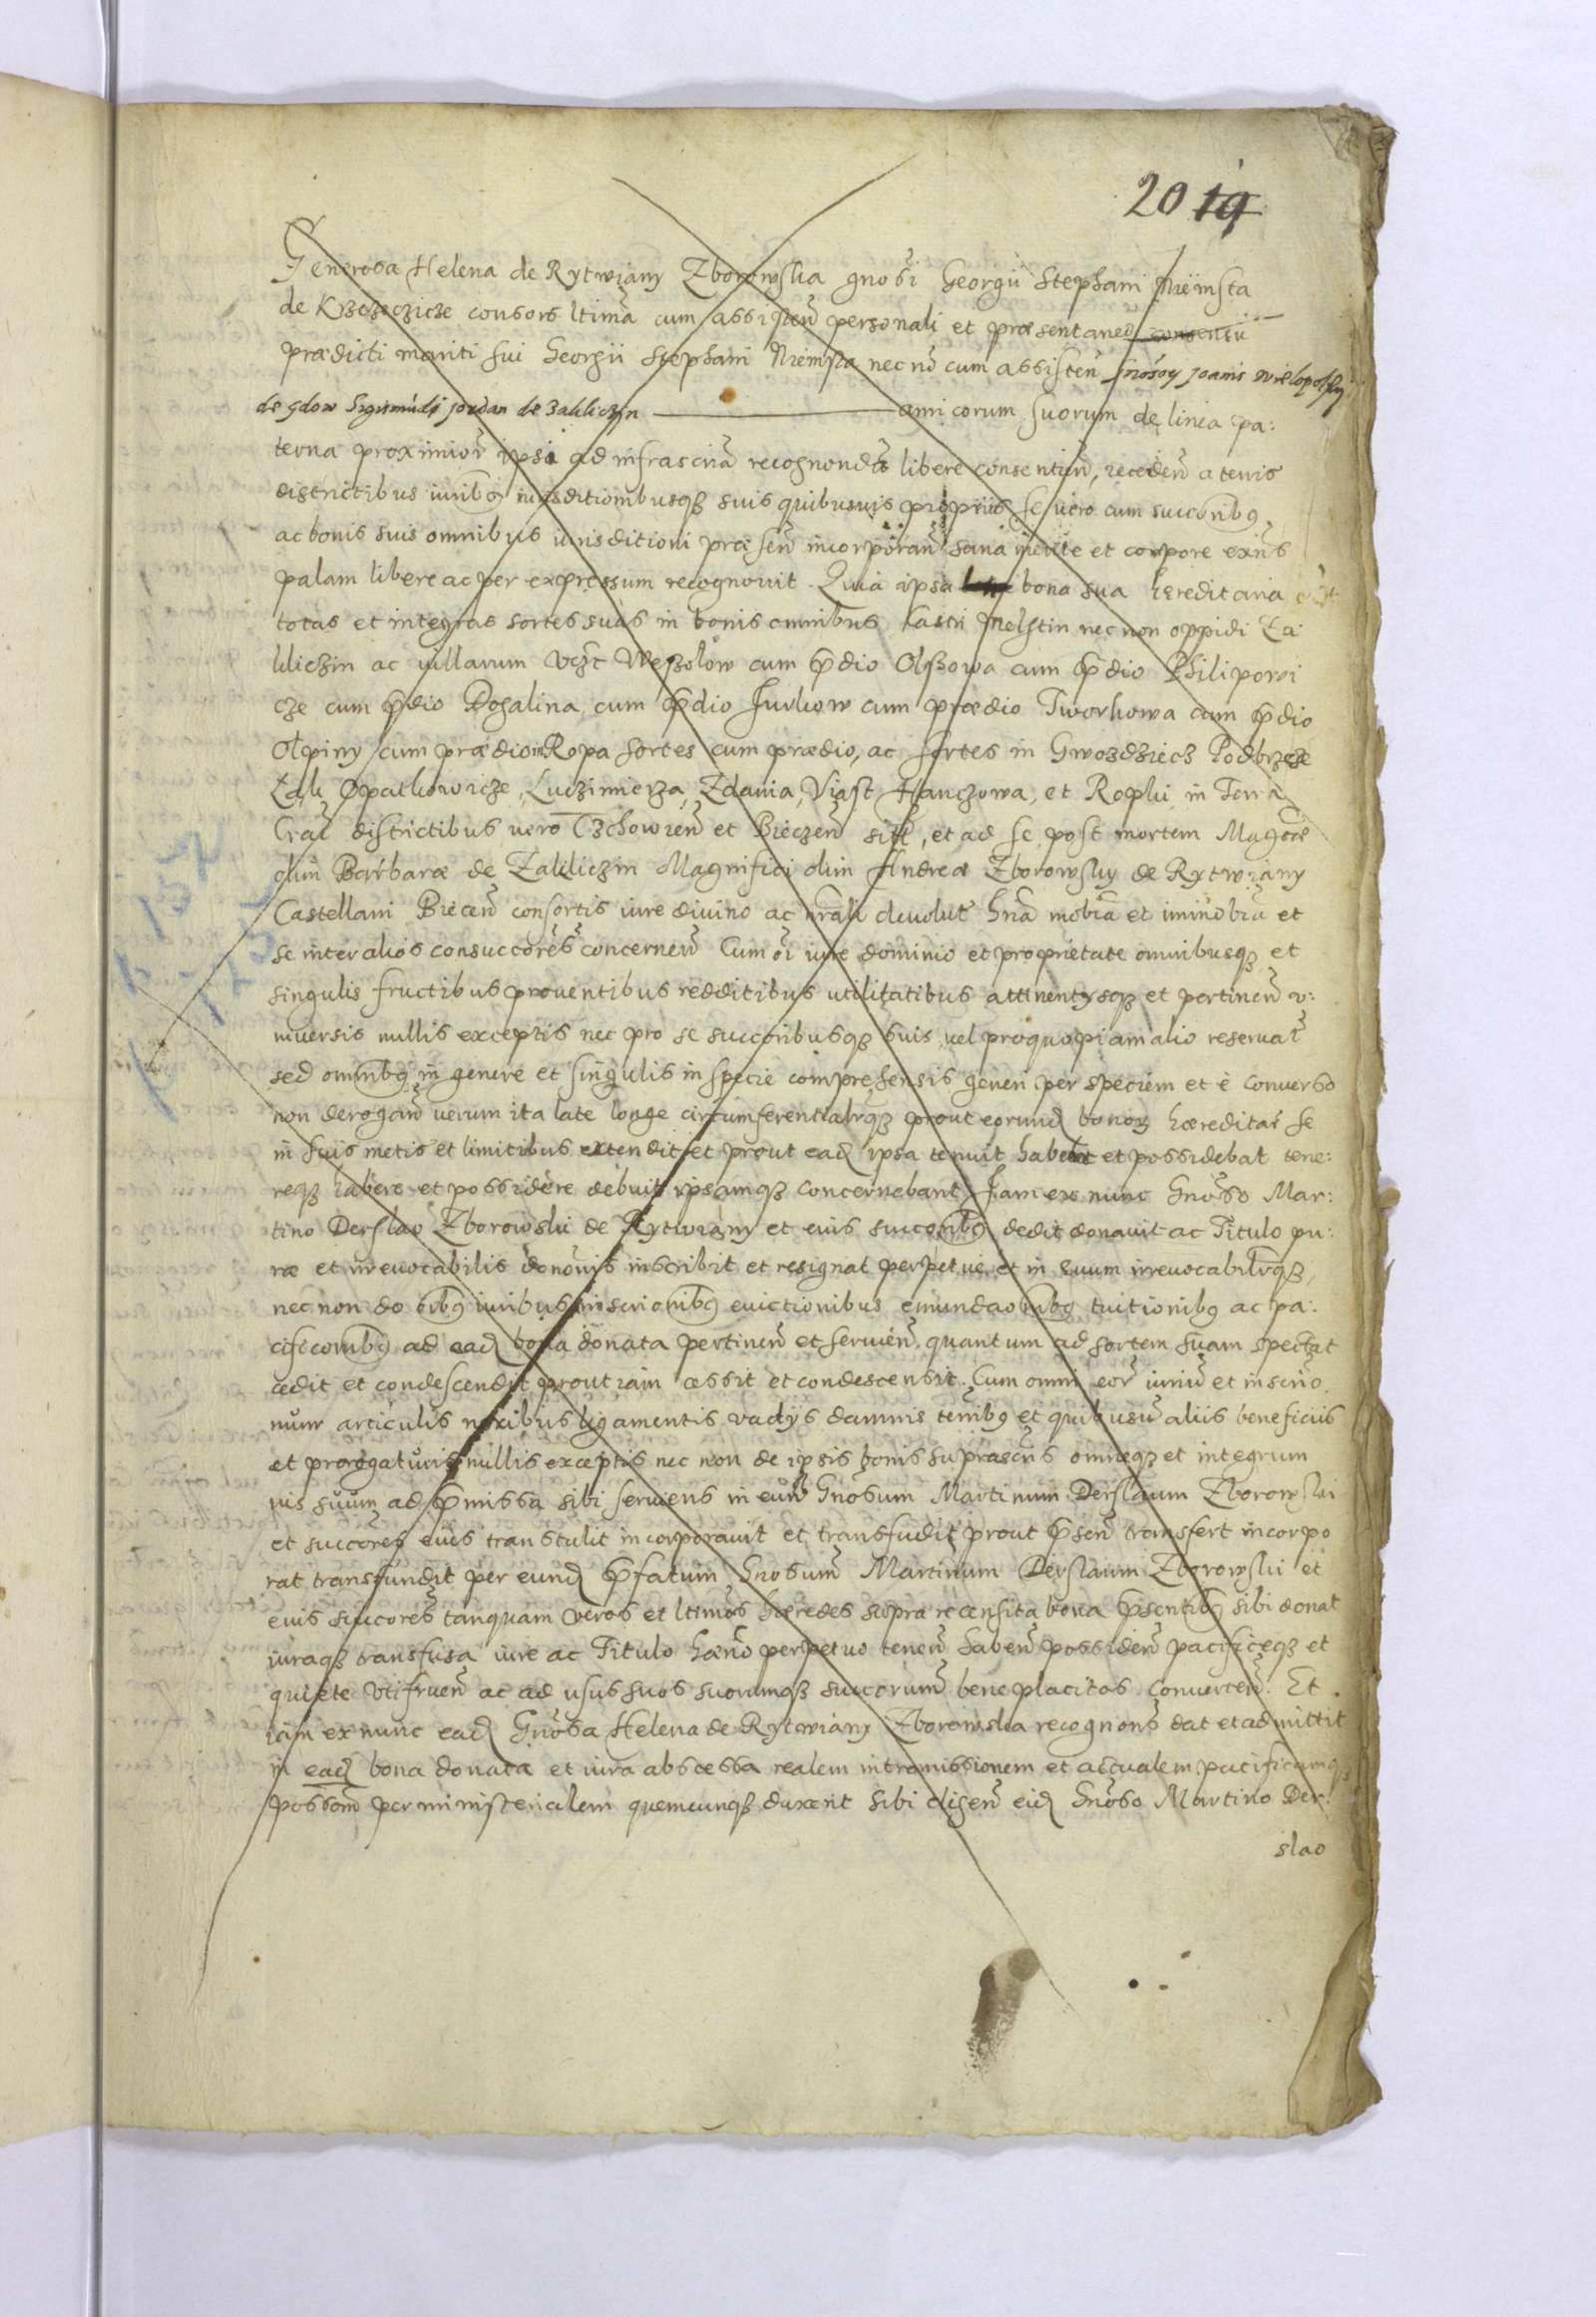 20 19
Generosa Helena de Rytwiany Zborowska gnosi Georgii Stephani Niemsta
de Krzczęczicze consors ltima cum assisten personali et præsentaneo consensu
prædicti mariti sui Georgii Stephani Niemsta nec nō cum assisten Gnosoꝝ Joanis Wielopolsky
de Gdow Sigismūdi Jordan de Zakliczyn amicorum suorum de linea pa:
terna proximior ipsi ad infrascrīa recognondā libere consentien, receden a terris
districtibus iuribꝯ iurisditionibusqꝫ suis quibusuis propriis se vero cum succoribꝯ
ac bonis suis omnibus iurisditioni præsen incorporan sana mente et corpore exns
palam libere ac per expressum recognouit Quia ipsa bona sua hereditaria
totas et integras sortes suas in bonis omnibus Castri Melstin nec non oppidi Za
kliczin ac villarum vczt Wesolow cum ꝑdio Olssowa cum ꝑdio Philipowi
cze cum ꝑdio Rogalina cum ꝑdio Jurkow cum prædio Tworkowa cum ꝑdio
Olpiny cum prædio in Ropa sortes cum prædio, ac sortes in Gwozdziecz Podbrzeze
Zak Opatkowicze, Luczimierza, Zdania, Viast Hanczowa, et Ropki in Terra
Craē districtibus vero Czchowien et Bieczen sitt, et ad se post mortem Magcæ
olim Barbaræ de Zakliczin Magnifici olim Andreæ Zborowsky de Rytwiany
Castellani Biecen consortis iure diuino ac nrali deuolut gna mobia et imimobia et
se inter alios consuccores concernen Cum oi iure dominio et proprietate omnibusqꝫ et
singulis fructibus prouentibus redditibus vtilitatibus attinentysqꝫ et pertinen v:
niuersis nullis exceptis nec pro se succoribusqꝫ suis vel pro quopiam alio reseruat
sed omnibꝯ in genere et singulis in specie comprehensis generi per speciem et è conuerso
non derogan verum ita late longe circumferentialrqꝫ prout eorund bonoꝝ hæreditas se
in suis metis et limitibus extendit et prout ead ipsa tenuit habebat et possidebat tene:
reqꝫ habere et possidere debuit ipsamqꝫ concernebant Jam ex nunc Gnoso Mar:
tino Derslao Zborowski de Rytwiany et eius succoribꝯ dedit donauit ac Titulo pu:
ræ et irreuocabilis dononis inscribit et resignat perpetue et in æuum irreuocabilrqꝫ,
nec non do oibꝯ iuribus inscrionibꝯ euictionibus emundaonibꝯ tuitionibꝯ ac pa:
cificonibꝯ ad ead bona donata pertinen et seruien quantum ad sortem suam spectat
cedit et condescendit prout iam cessit et condescensit. Cum omni eor iuriu et inscrio
num articulis nexibus ligamentis vadys damnis tenibꝯ et quibusu aliis beneficiis
et prorogatuis nullis exceptis nec non de ipsis bonis suprascris omneqꝫ et integrum
ius suum ad ꝑmissa sibi seruiens in eund Gnosum Martinum Derslaum Zborowski
et succores eius transtulit incorporauit et transfudit prout ꝑsen transfert incorpo
rat transfundit per eund ꝑfatum Gnosum Martinum Derslaum Zborowski et
euis succores tanquam veros et ltimos hæredes supra recensita bona ꝑsentibꝯ sibi donat
iuraqꝫ transfusa iure ac Titulo hærio perpetuo tenen haben possiden pacificeqꝫ et
quiete vtifruen ac ad usus suos suorumqꝫ succorum bene placitos conuerten. Et
iam ex nunc ead Gnosa Helena de Rytwiany Zborowska recognons dat et admittit
in ead bona donata et iura abscessa realem intromissionem et actualem pacificamqꝫ
possom per ministerialem quemcunqꝫ duxerit sibi eligen eid Gnoso Martino Der:
slao